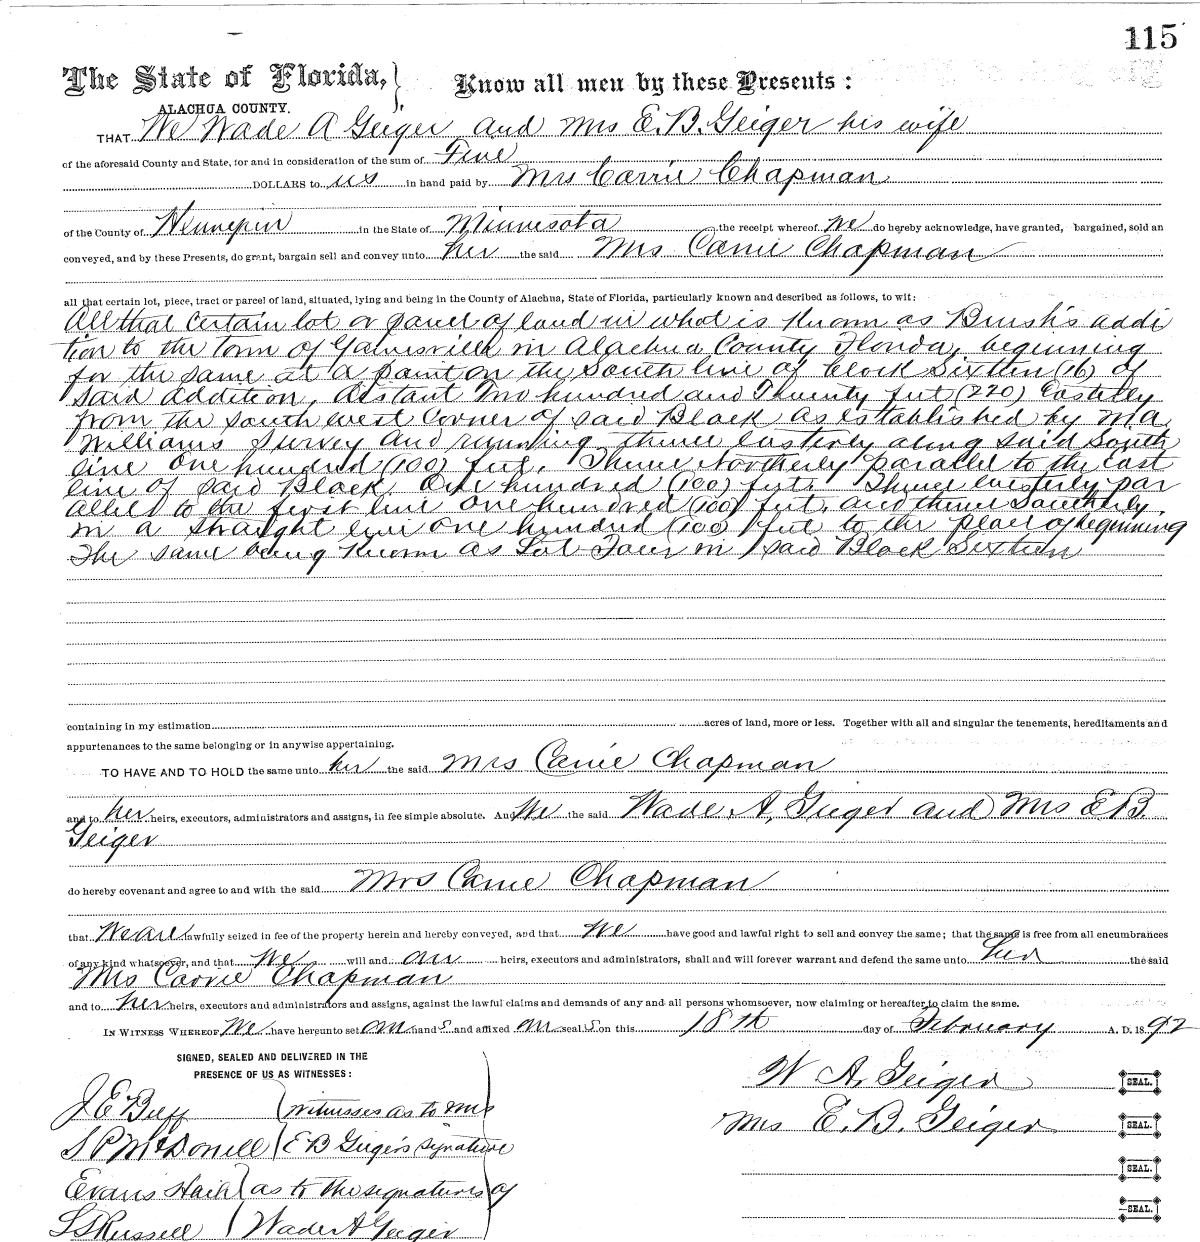 115
The State of Florida, } Know all men by these Presents:
ALACHUA COUNTY.
THAT We Wade A Geiger and Mrs E. B. Geiger his wife
of the aforesaid County and State, for and in consideration of the sum of Five
DOLLARS to us in hand paid by Mrs Carrie Chapman
of the County of Hennepin in the State of Minnesota the receipt whereof we do hereby acknowledge, have granted, bargained, sold an
conveyed, and by these Presents, do grant, bargain sell and convey unto her the said Mrs Carrie Chapman
all that certain lot, piece, tract or parcel of land, situated, lying and being in the County of Alachua, State of Florida, particularly known and described as follows, to wit:
All that certain lot or parcel of land in what is known as Brush's addi
tion to the Town of Gainesville in Alachua County Florida, beginning
for the same at a point on the South line of block Sixteen (16) of
said addition, distant Two hundred and Twenty feet (220) Easterly
from the South west Corner of said Block as established by M.A.
Williams Survey and running thence easterly along said South
line one hundred (100) feet, Thence Northerly parallel to the East
line of said Block, One hundred (100) feet. Thence westerly par
allel to the first line one hundred (100) feet, and thence Southerly
in a straight line one hundred (100) feet to the place of beginning
The same being known as Lot Four in said Block Sixteen
containing in my estimation acres of land, more or less. Together with all and singular the tenements, hereditaments and
appurtenances to the same belonging or in anywise appertaining.
TO HAVE AND TO HOLD the same unto her the said Mrs Carrie Chapman
and to her heirs, executors, administrators and assigns, in fee simple absolute. And We the said Wade A, Geiger and Mrs E B.
Geiger
do hereby covenant and agree to and with the said Mrs Carrie Chapman
that We are lawfully seized in fee of the property herein and hereby conveyed, and that We have good and lawful right to sell and convey the same; that the same is free from all encumbrances
of any kind whatsoever, and that We will and our heirs, executors and administrators, shall and will forever warrant and defend the same unto her the said
Mrs Carrie Chapman
and to her heirs, executors and administrators and assigns, against the lawful claims and demands of any and all persons whomsoever, now claiming or hereafter to claim the same.
IN WITNESS WHEREOF We have hereunto set our hand s and affixed our seal s on this 18th day of February A. D. 18 92
SIGNED, SEALED AND DELIVERED IN THE
PRESENCE OF US AS WITNESSES:
W A, Geiger SEAL.
J. E. witnesses as to Mrs
Mrs E. B. Geiger SEAL.
S P McDonell E B Geiger's signature
SEAL.
Evans Haile as to the signatures of
SEAL.
L S Russell Wade A Geiger